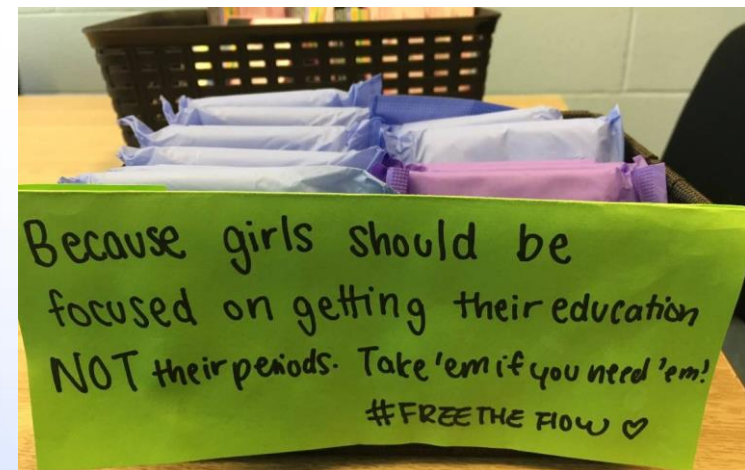 Because girls should be
focused on getting their education
NOT their periods. Take 'em if you need 'em!
#FREE THE FLOW ♡